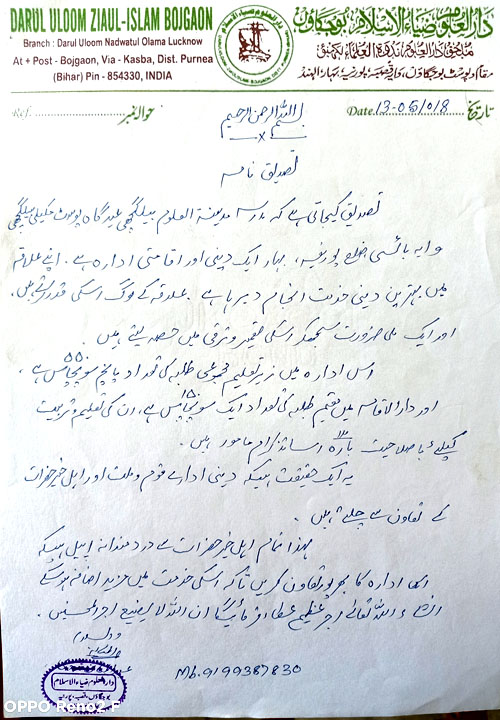 DARUL ULOOM ZIAUL-ISLAM BOJGAON
Branch : Darul Uloom Nadwatul Olama Lucknow
At + Post - Bojgaon, Via - Kasba, Dist. Purnea
(Bihar) Pin - 854330, INDIA
دارالعلوم ضیاء الاسلام بوجگاؤں
Ref.
حوالہ نمبر
بسم اللہ الرحمن الرحیم
Date. 13-05/018
تاریخ
تصدیق نامہ
تصدیق کیجاتی ہے کہ مدرسہ مدینۃ العلوم بیلگچھی عیدگاہ پوسٹ
وایہ بائسی ضلع پورنیہ، بہار ایک دینی اور اقامتی ادارہ ہے۔ اپنے علاقہ
میں بہترین دینی خدمت انجام دے رہا ہے۔ علاقہ کے لوگ اسکی قدر کرتے ہیں۔
اور ایک ملی ضرورت سمجھکر اسکی تعمیر و ترقی میں حصہ لیتے ہیں
اس ادارہ میں زیر تعلیم مجموعی طلبہ کی تعداد پانچ سو پچاس ہے۔
اور دارالاقامہ میں مقیم طلبہ کی تعداد ایک سو پچاس ہے، ان کی تعلیم و تربیت
کیلئے با صلاحیت بارہ اساتذہ کرام مامور ہیں۔
یہ ایک حقیقت ہیکہ دینی ادارے قوم و ملت اور اہل خیر حضرات
کے تعاون سے چلتے ہیں۔
لہذا تمام اہل خیر حضرات سے دردمندانہ اپیل ہیکہ
اس ادارہ کا بھرپور تعاون کریں تاکہ اسکی خدمت میں مزید اضافہ ہوسکے
انشاء اللہ تعالی اجر عظیم عطا فرمائیگا ان اللہ لا یضیع اجر المحسنین۔
والسلام
Mb. 9199387830
دارالعلوم ضیاء الاسلام
OPPO Reno2 F